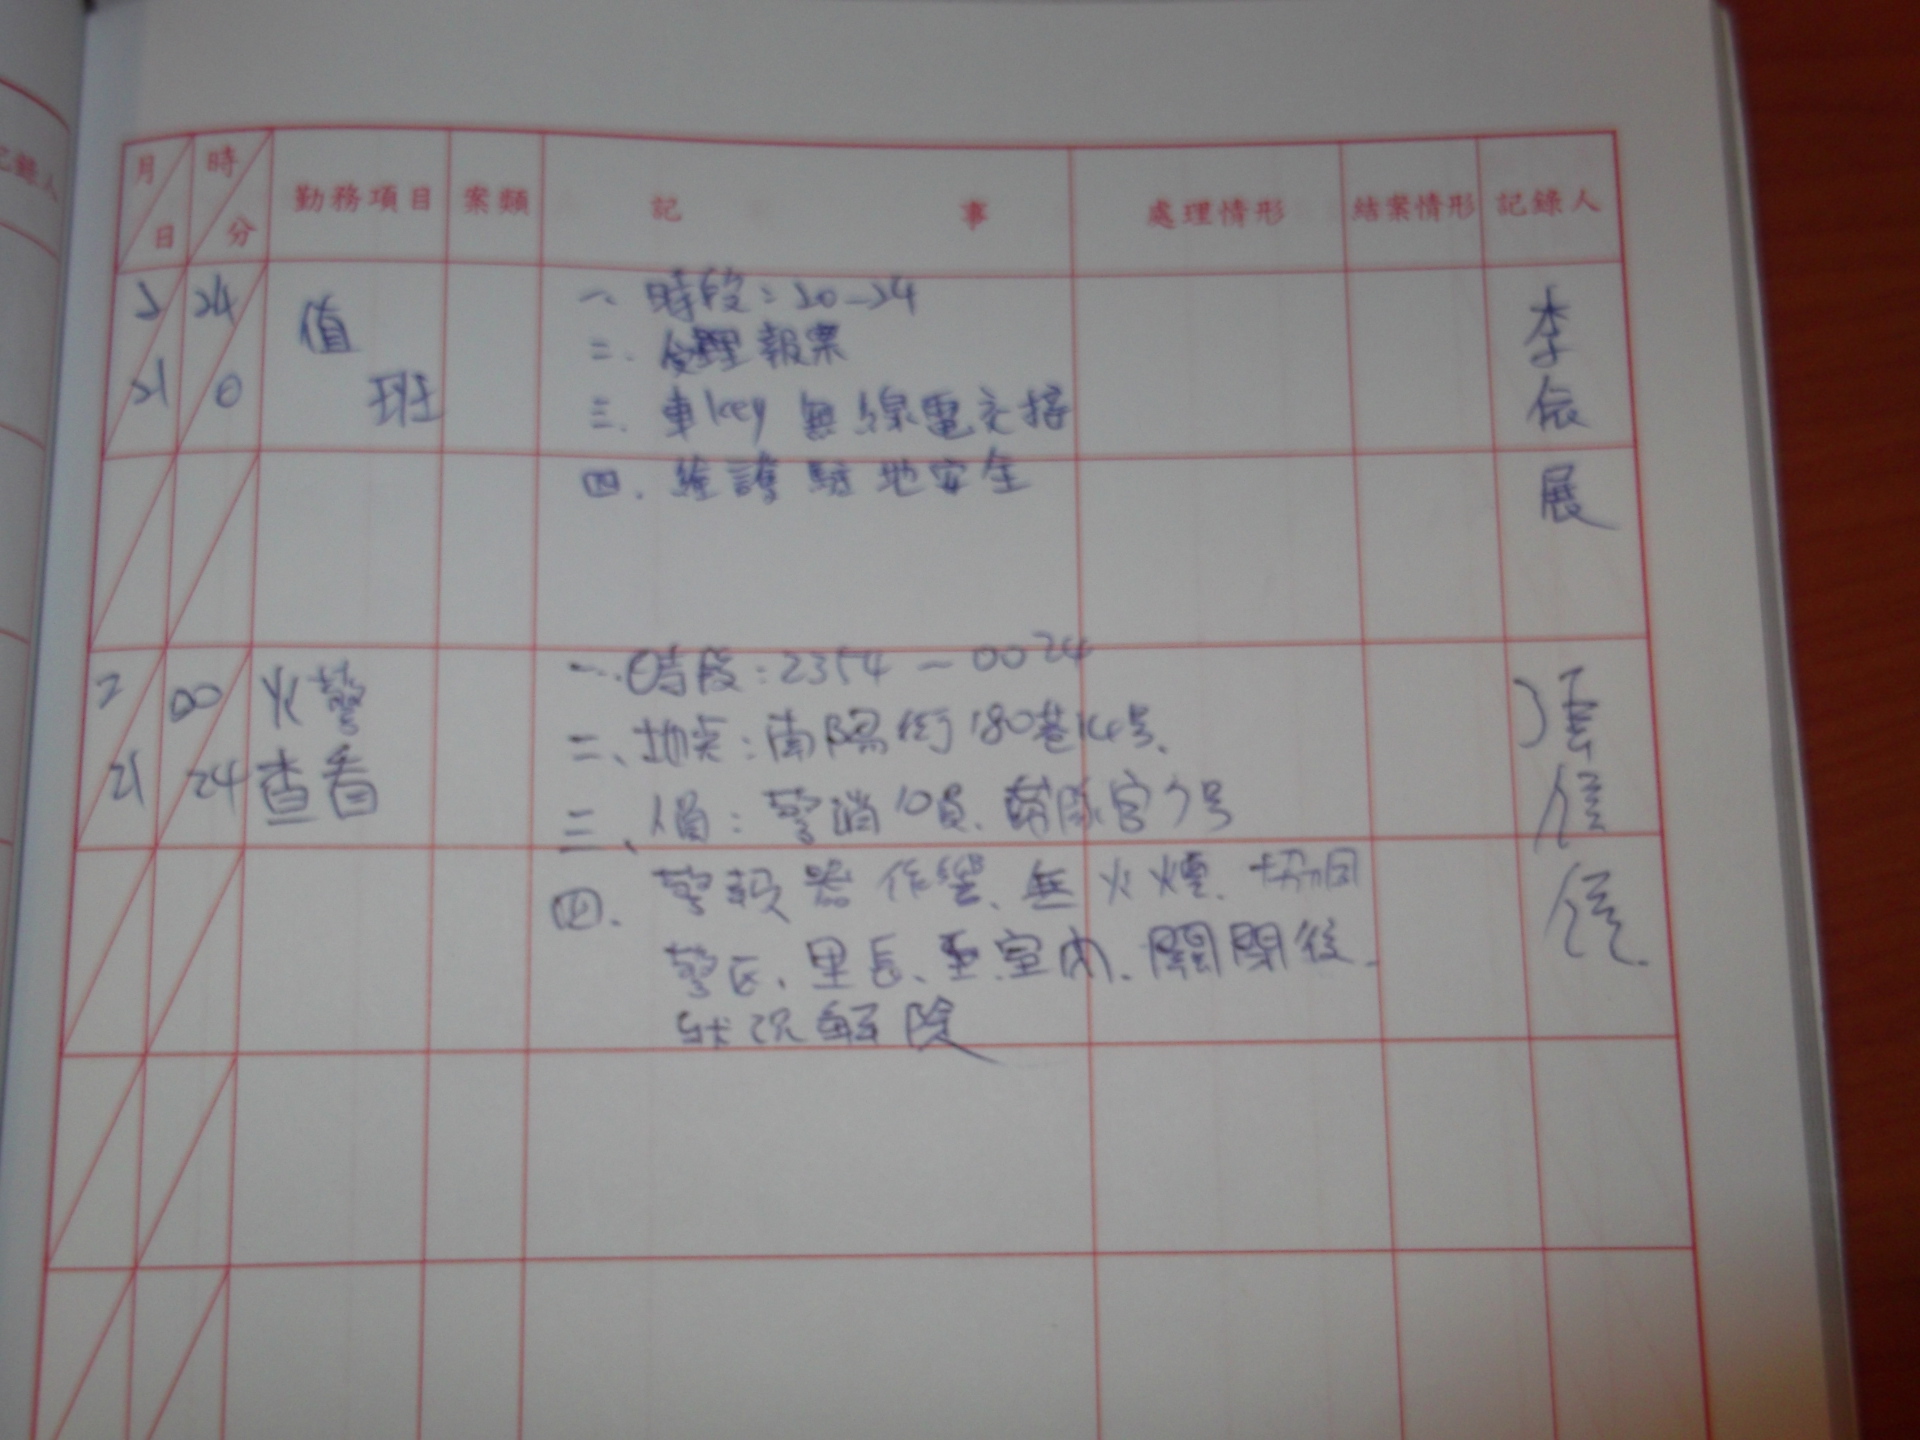 記錄人
月 日 時 分 勤務項目 案類 記 事 處理情形 結案情形 記錄人
2 21 24 0 值班
一、時段：20-24
二、受理報案
三、車key 無線電交接
四、維護駐地安全
李依展
2 21 00 24 火警查看
一、時段：2354-0024
二、地點：南陽街180巷14號、
三、人員：警消10員、
四、警報器作響、無火煙、協同
警員、里長、至室內、關閉後、
狀況解除